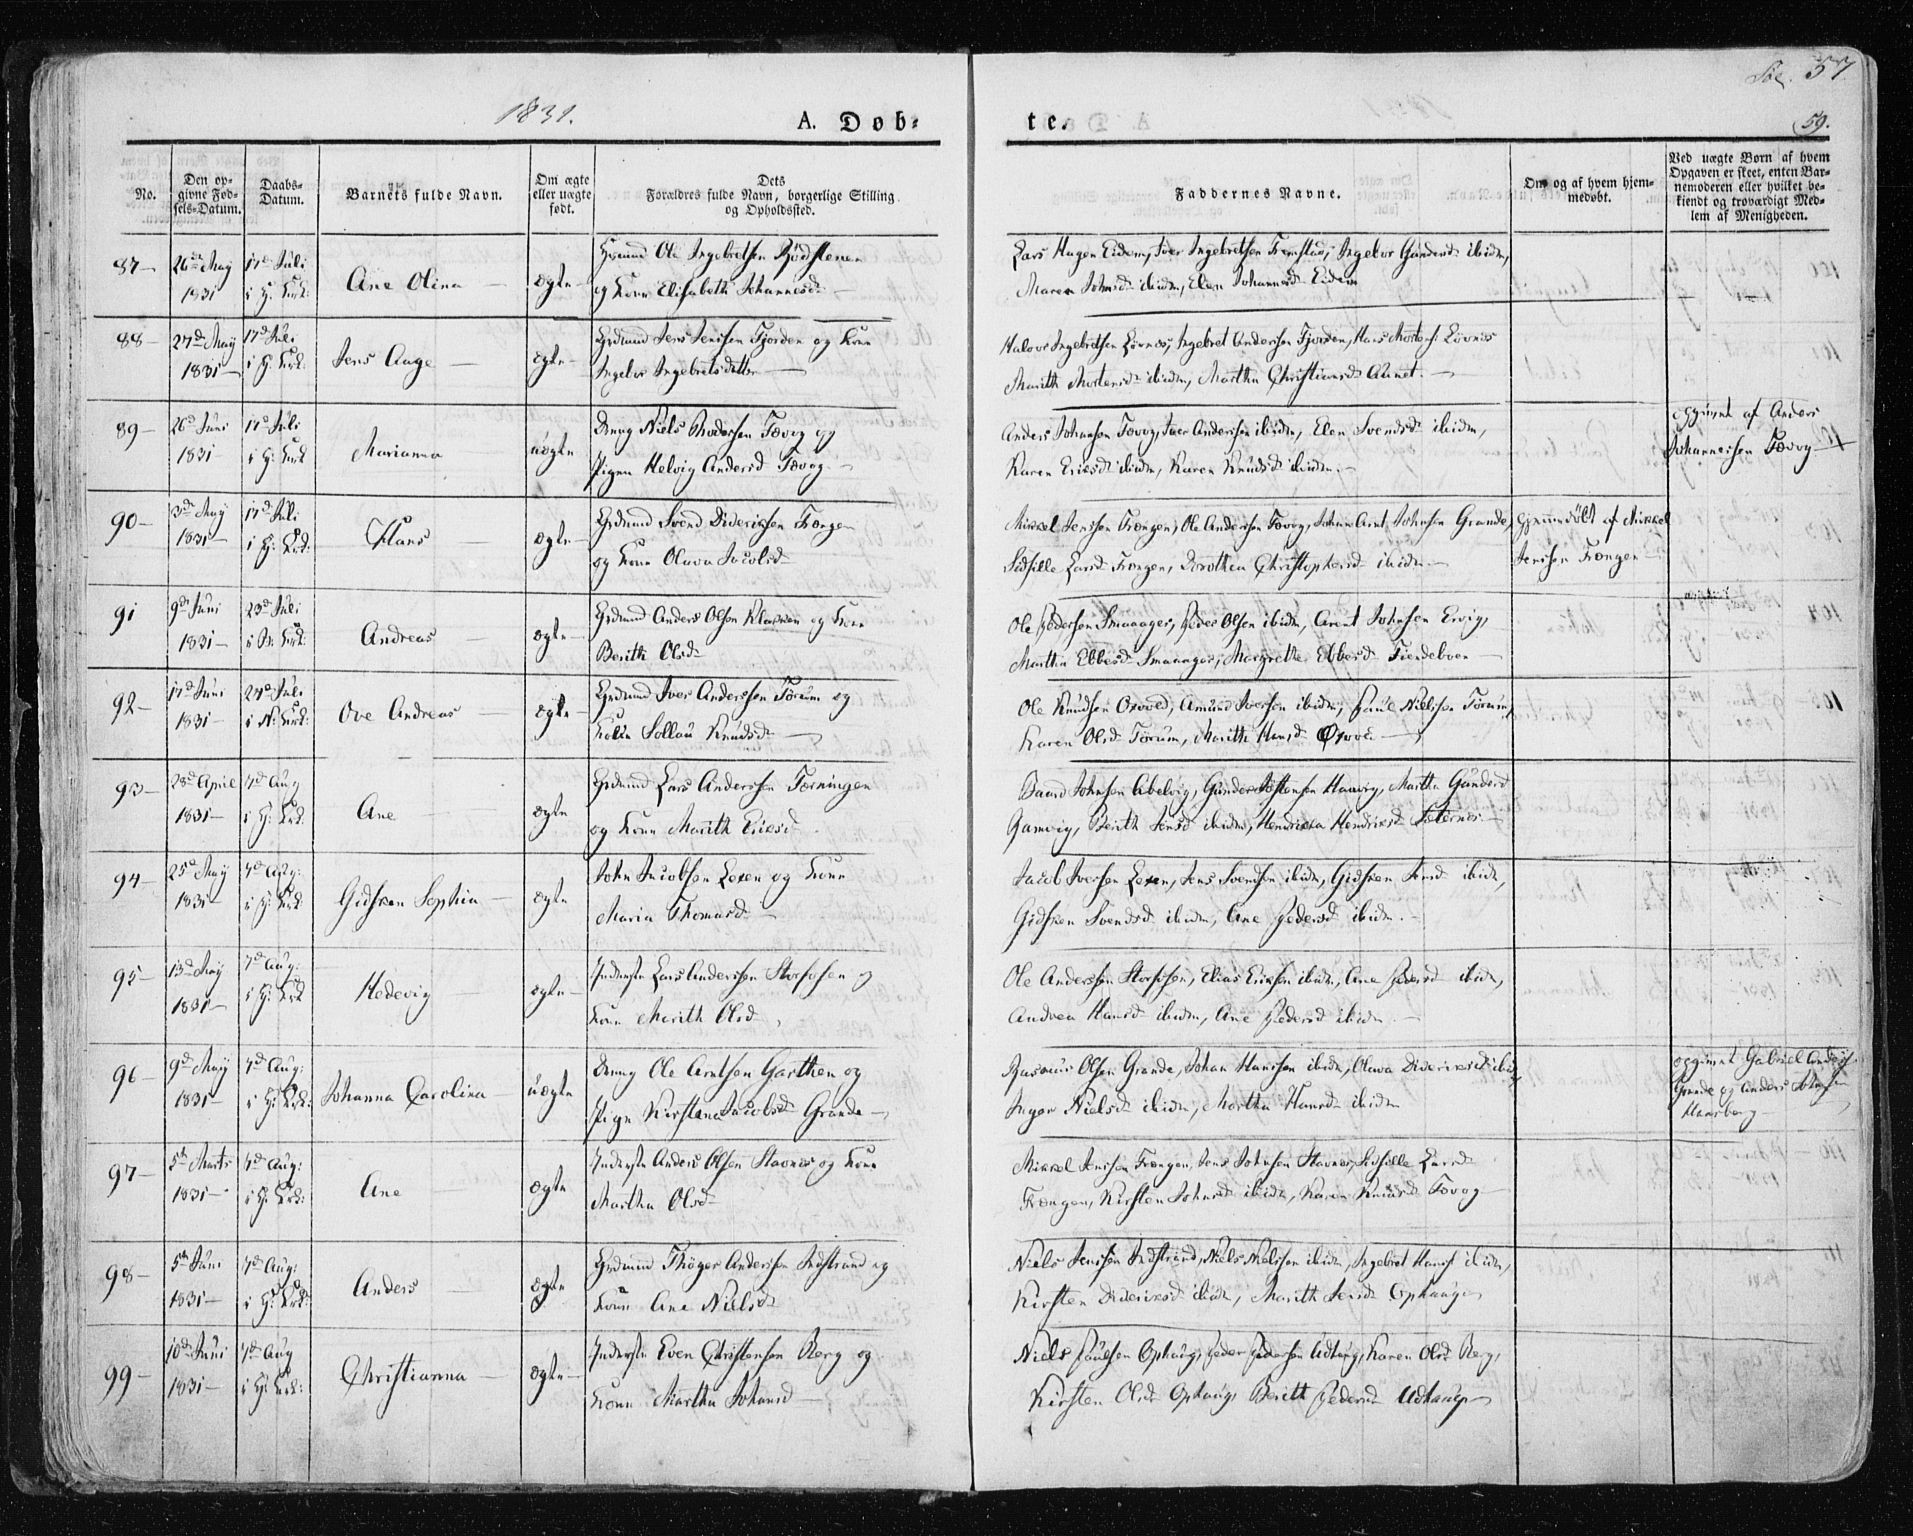 1831.
A. Døb-
te.
57
59.
No.
Den op-
givne Fød-
sels-Datum.
Daabs-
Datum.
Barnets fulde Navn.
Om ægte
eller uægte
født.
Dets
Forældres fulde Navn, borgerlige Stilling
og Opholdssted.
Faddernes Navne.
Om og af hvem hjem-
medøbt.
Ved uægte Børn af hvem
Opgaven er skeet, enten Bar-
nemoderen eller hvilket be-
kiendt og troværdigt Med-
lem af Menigheden.
87-
26de May
1831
17d Juli
Ane Olina
ægte
Ole Ingebretsen
og Kone Elisabeth Johannesd
Lars Hagen Eidem, Iver Ingebretsen Fremstad, Ingebor Gundersd ibidm,
Maren Johnsd ibidm, Elen Johannesd Eidem
88-
27de May
1831
17d Juli
Jens Aage
ægte
Grdmand Jens Jensen Fjorden og Kone
Ingebor Ingebretsdatter
Halvor Ingebretsen Løvnes, Ingebret Anderssen Fjorden, Hans Mortens: Løvnes
Marith Mortensd ibidm, Martha Christiansd Aunet.
89-
26d Juni
1831
17d Juli
Marianna
uægte
Dreng Niels Tævog og
Pigen Helvig Andersd Tævog
Anders Johansen Tævog, Iver Anderssen ibidm, Elen Svendsd ibidm,
Karen Eriksd ibidm, Karen Knudsd ibidm.
opgivet af Anders
Johannessen Tævog
90-
3de May
1831
17d Juli
Hans
ægte
Grdmand Svend Dideriksen Frængen
og Kone Olava Jacobsd
Mikkel Jenssen Frængen, Ole Anderssen Tævog, Johan Arnt Johnsen Grande,
Sidsille Larsd Frengen, Dorothea Christophersd ibidm
Hjemmedøbt af Mikkel
Jenssen Frængen
91
9de Juni
1831
23d Juli
Andreas
ægte
Grdmand Anders Olsen og Kone
Berith Olsd
Ole Pedersen Smaaager, Peder Olsen ibidm, Arent Johnsen Ervig,
Martha Ebbesd Smaaager, Margrethe Ebbesd
92-
17d Juni
1831
24d Juli
Ove Andreas
ægte
Grdmand Iver Anderssen Tørum og
Kone Sollau Knudsd
Ole Knudsen Opvod, Amund Iversen ibidm, Paul Nielssen Tørum,
Karen Olsd Tørum, Marith Hansd
93-
28d April
1831
7d Aug
Ane
ægte
Grdmand Lars Anderssen Tørningen
og Kone Marith Eriksd
Baard Johnsen Abelvig, Gunder Haavig, Martha Gundersd
Gamvig, Berith Jensd ibidm, Hendrikka Hendriksd
94-
25d May
1831
7d Aug:
Gidsken Sophia
ægte
John Jacobsen Lexen og Kone
Maria Thomasd
Jacob Iversen Lexen, Jens Svendsen ibidm, Gidsken Jensd ibidm,
Gidsken Svendsd ibidm, Ane Pedersd ibidm.
95-
13d May
1831
7d Aug:
Hedevig
ægte
Inderste Lars Anderssen Storfosen og
Kone Marith Olsd
Ole Anderssen Storfosen, Elias Eriksen ibidm, Ane Pedersd ibidm,
Andrea Hansd ibidm, Ane Pedersd ibidm.
96-
9d May
1831
7d Aug:
Johanna Carolina
uægte
Dreng Ole Arntsen Garthen og
Pige Kirstana Jacobsd Grande
Rasmus Olsen Grande, Johan Hanssen ibidm, Olava Didriksd ibidm
Inger Nielsd ibidm, Martha Hansd ibidm
opgivet Gabriel
Grande og Anders Johnsen
97-
5te Marts
1831
7d Aug:
Ane
ægte
Inderste Anders Olsen Stavnes og Kone
Martha Olsd
Mikkel Jenssen Frængen, Jens Johnsen Stavnes, Sidsille Larsd
Frængen, Kirsten Johnsd ibidm, Karen Knudsd Tævog
98-
5te Juni
1831
7d Aug:
Anders
ægte
Grdmand Thøger Anderssen Indstrand og
Kone Ane Nielsd
Niels Jenssen Indstrand, Niels Nielssen ibidm, Ingebret Hanss ibidm,
Kirsten Dideriksd ibidm, Marith Jensd Ophaug
99-
10de Juni
1831
7d Aug
Christianna
ægte
Inderste Even Christensen Berg og
Kone Martha Johansd
Niels Paulsen Ophaug, Peder Pedersen Udhaug, Karen Olsd Berg,
Kirsten Olsd Ophaug, Berith Pedersd Udhaug